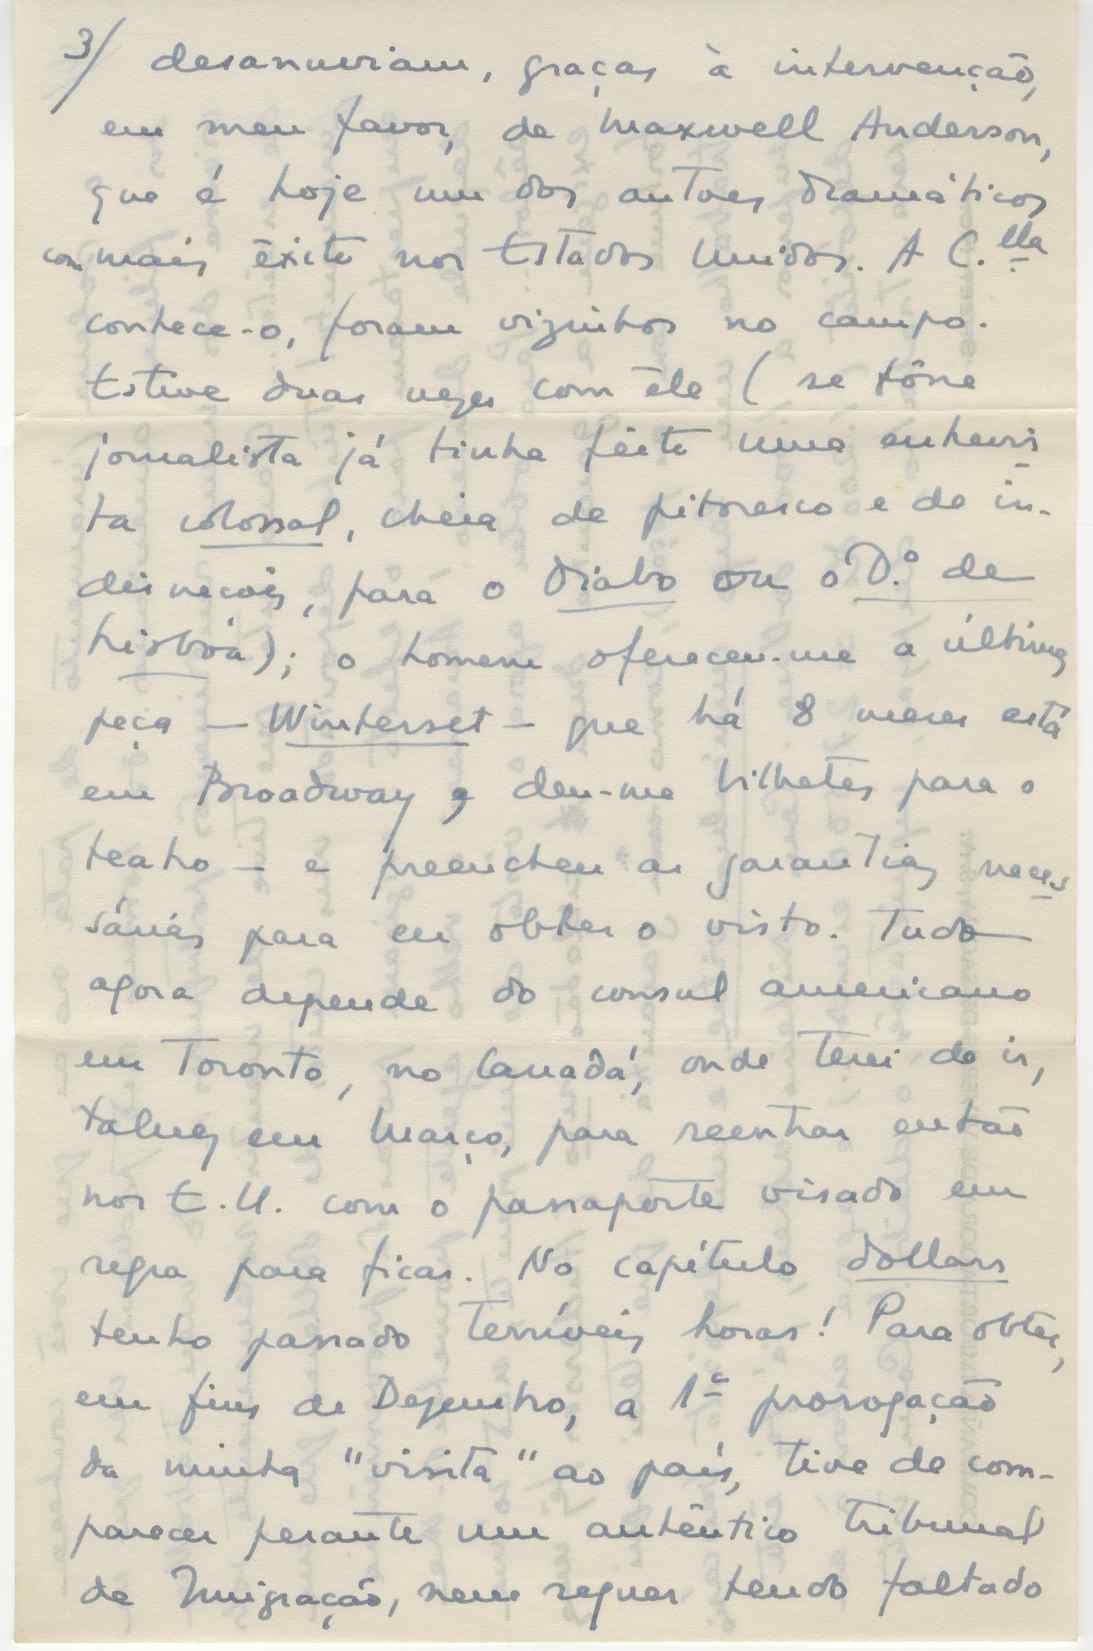 3/ desanuviam, graças à intervenção,
em meu favor, de Maxwell Anderson,
que é hoje um dos autores dramáticos
com mais êxito nos Estados Unidos. A C.lla
conhece-o, foram vizinhos no campo.
Estive duas vezes com êle (se fôsse
jornalista já tinha feito uma entrevis
ta colossal, cheia de pitoresco e de in-
discreções, para o Diabo ou o D.º de
Lisboa); o homem ofereceu-me a última
peça — Winterset — que há 8 meses está
em Broadway e deu-me bilhetes para o
teatro — e preencheu as garantias neces
sárias para eu obter o visto. Tudo
agora depende do consul americano
em Toronto, no Canadá, onde terei de ir,
talvez em Março, para reentrar então
nos E.U. com o passaporte visado em
regra para ficar. No capítulo dollars
tenho passado terríveis horas! Para obter,
em fins de Dezembro, a 1ª prorogação
da minha "visita" ao país, tive de com-
parecer perante um autêntico tribunal
de Imigração, nem sequer tendo faltado